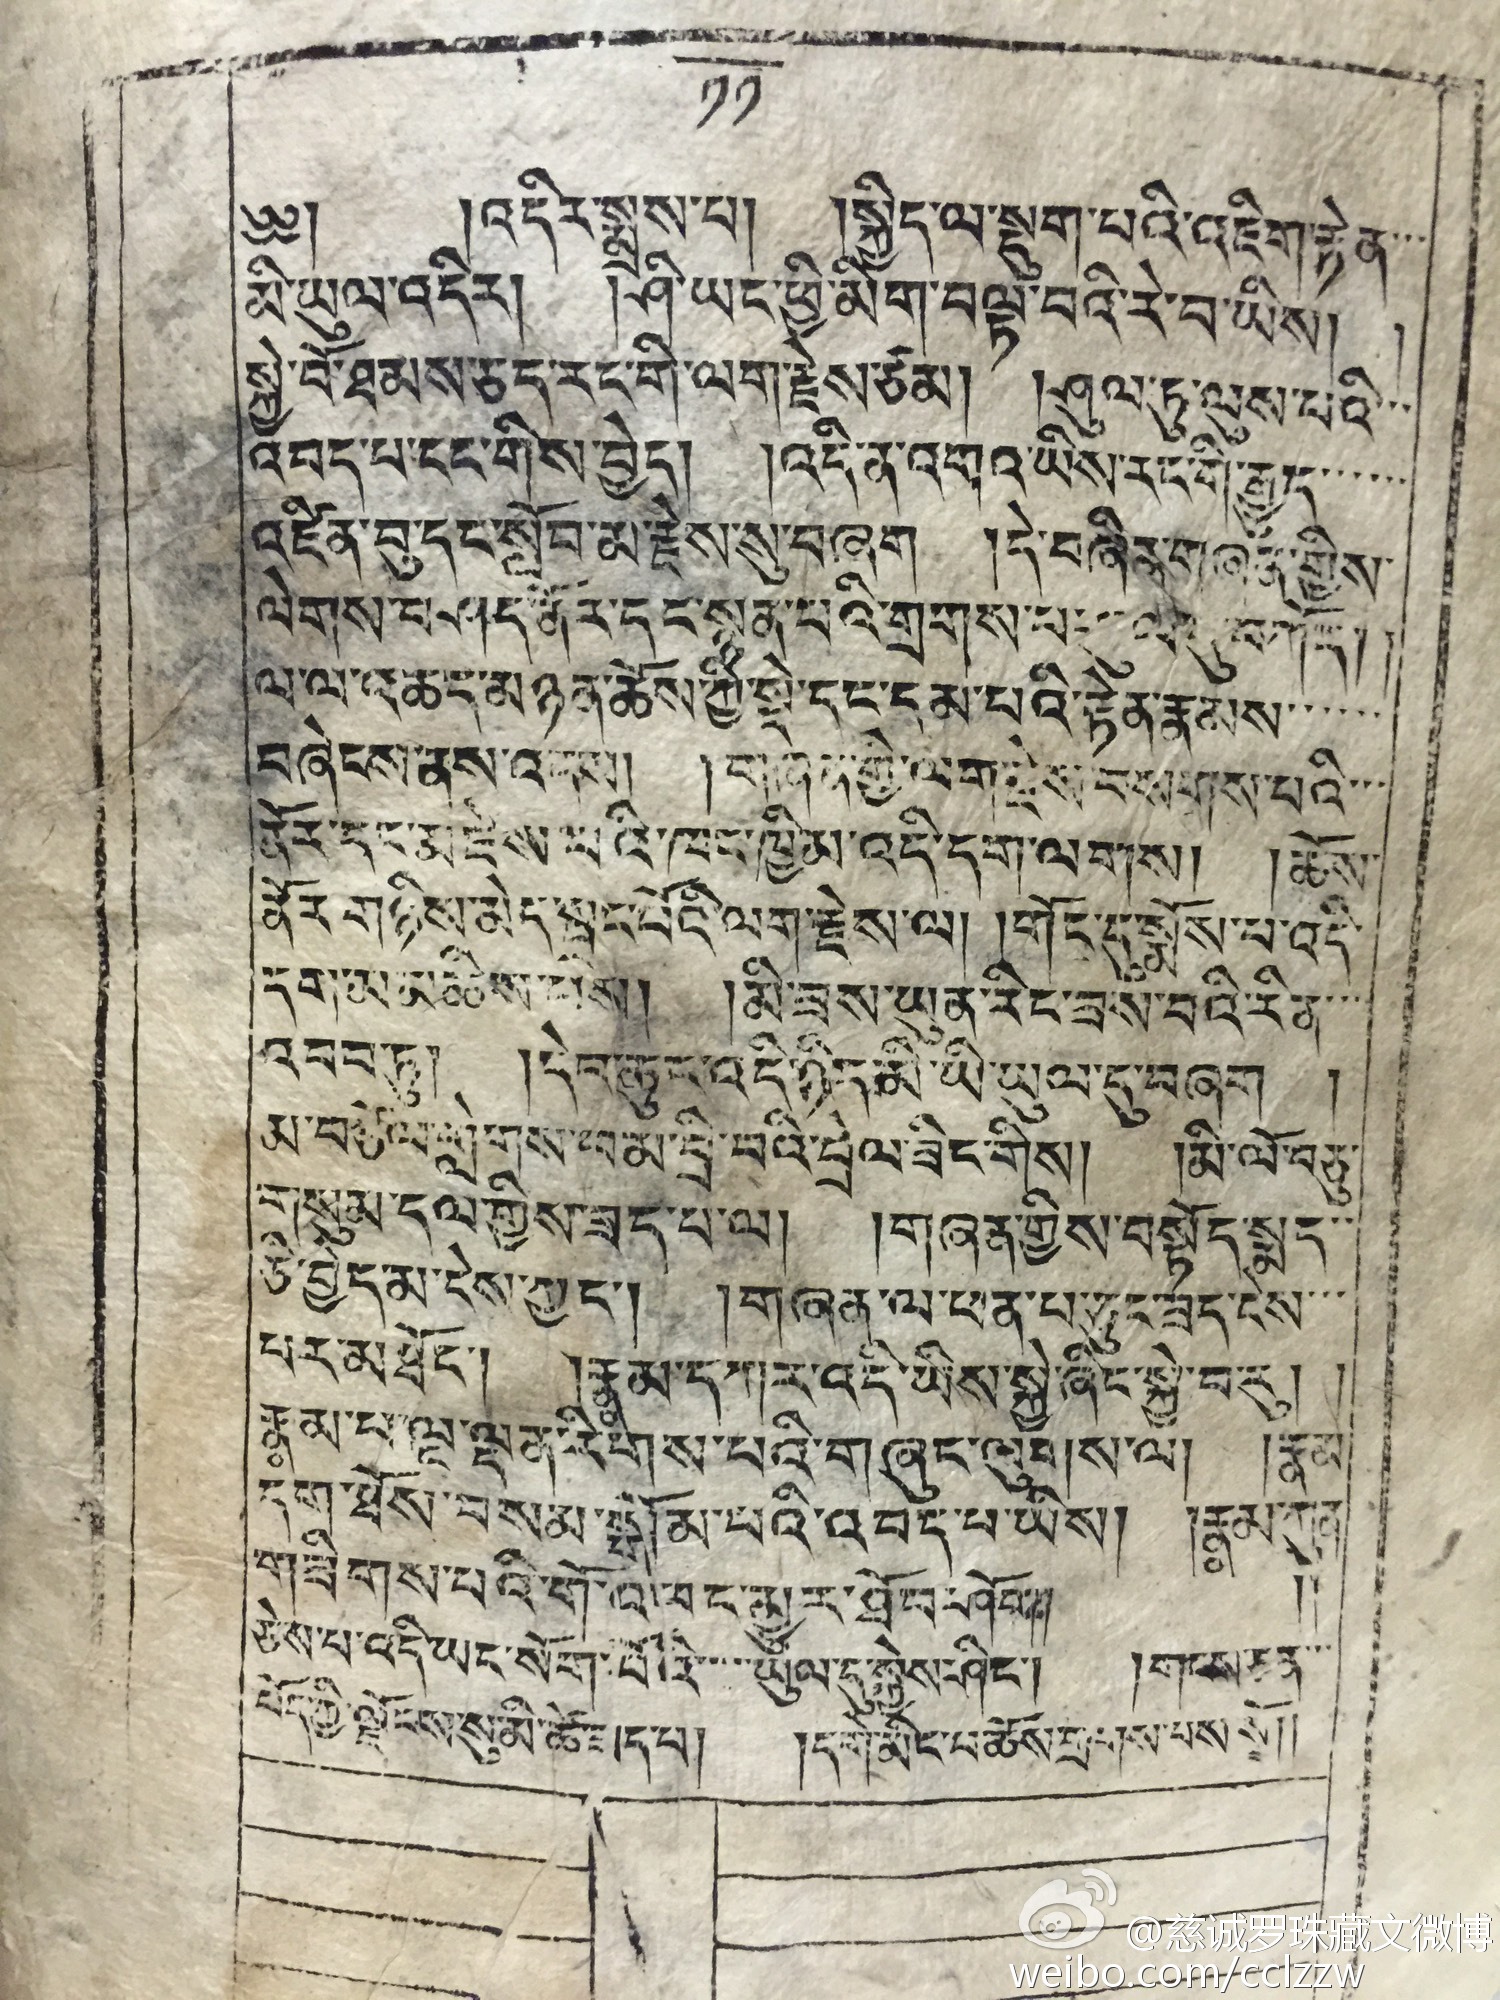 ༡༡
༄༅། །འདིར་སྨྲས་པ། །སྐྱིད་ལ་སྡུག་པའི་འཇིག་རྟེན
མི་ཡུལ་འདིར། །ཤི་ཡང་ཕྱི་མིག་བལྟ་བའི་རེ་བ་ཡིས། །
སྐྱེ་བོ་ཐམས་ཅད་རང་གི་ལག་རྗེས་ཙམ། །ཤུལ་དུ་ལུས་པའི
འབད་པ་ངང་གིས་བྱེད། །འདི་ན་འགའ་ཡིས་རང་གི་རྒྱུད
འཛིན་བུ་དང་སློབ་མ་རྗེས་སུ་བཞག །དེ་བཞིན་གཞན་གྱིས
ལེགས་བཤད་ནོར་དང་སྙན་པའི་གྲགས་པ
ལ་ལ་འཆད་མཉན་ཆོས་ཀྱི་སྡེ་དང་དམ་པའི་རྟེན་རྣམས
བཞེངས་ནས་འདས། །གཞན་གྱི་ལག་རྗེས་བསགས་པའི
ནོར་དང་མཛེས་པའི་ཁང་ཁྱིམ་འདི་དག་ལགས། །ཆོས
ནོར་གཉིས་མེད་སྤྲང་པོའི་ལག་རྗེས་ལ། །གོང་དུ་སྨོས་པ་འདི
དག་མ་མཆིས་པས། །མི་ཟས་ཡུན་རིང་ཟས་བའི་རིན
འབབ་ཏུ། །དེབ་ཆུང་འདི་ཉིད་མི་ཡི་ཡུལ་དུ་བཞག །
མ་བཅོས་གླེགས་བམ་དྲི་བའི་དྲེལ་ཟིང་གིས། །མི་ལོ་བཅུ
གསུམ་དལ་གྱིས་ཟད་པ་ལ། །གཞན་གྱིས་བསྟོད་སྨད
ཅི་བྱེད་མ་ངེས་ཀྱང་། །གཞན་ལ་ཕན་པ་ཅུང་ཟད་ངེས
པར་མཐོང་། །རྣམ་དཀར་འདི་ཡིས་སྐྱེ་ཞིང་སྐྱེ་བ་རུ། །
རྣམ་པ་ལྔ་ལྡན་རིགས་པའི་གཞུང་ལུགས་ལ། །རྣམ
དག་ཐོས་བསམ་སྒོམ་པའི་འབད་པ་ཡིས། །རྣམ་ཀུན
གཟིགས་པའི་གོ་འཕང་མྱུར་ཐོབ་ཤོག །།
ཅེས་པ་འདི་ཡང་སོག་པོའི་ཡུལ་དུ་སྐྱེས་ཤིང་། །གངས་ཅན
བོད་ཀྱི་ལྗོངས་སུ་མི་ཚེ་ཟད་པ། །དགེ་མིང་པ་ཆོས་གྲགས་པས་སོ། །
@慈诚罗珠藏文微博
weibo.com/cclzzw